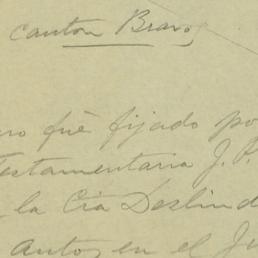 Canton Bravo,
ro fué fijado po
Testamentaria J. P.
la Cia Deslind
autos en el Ju